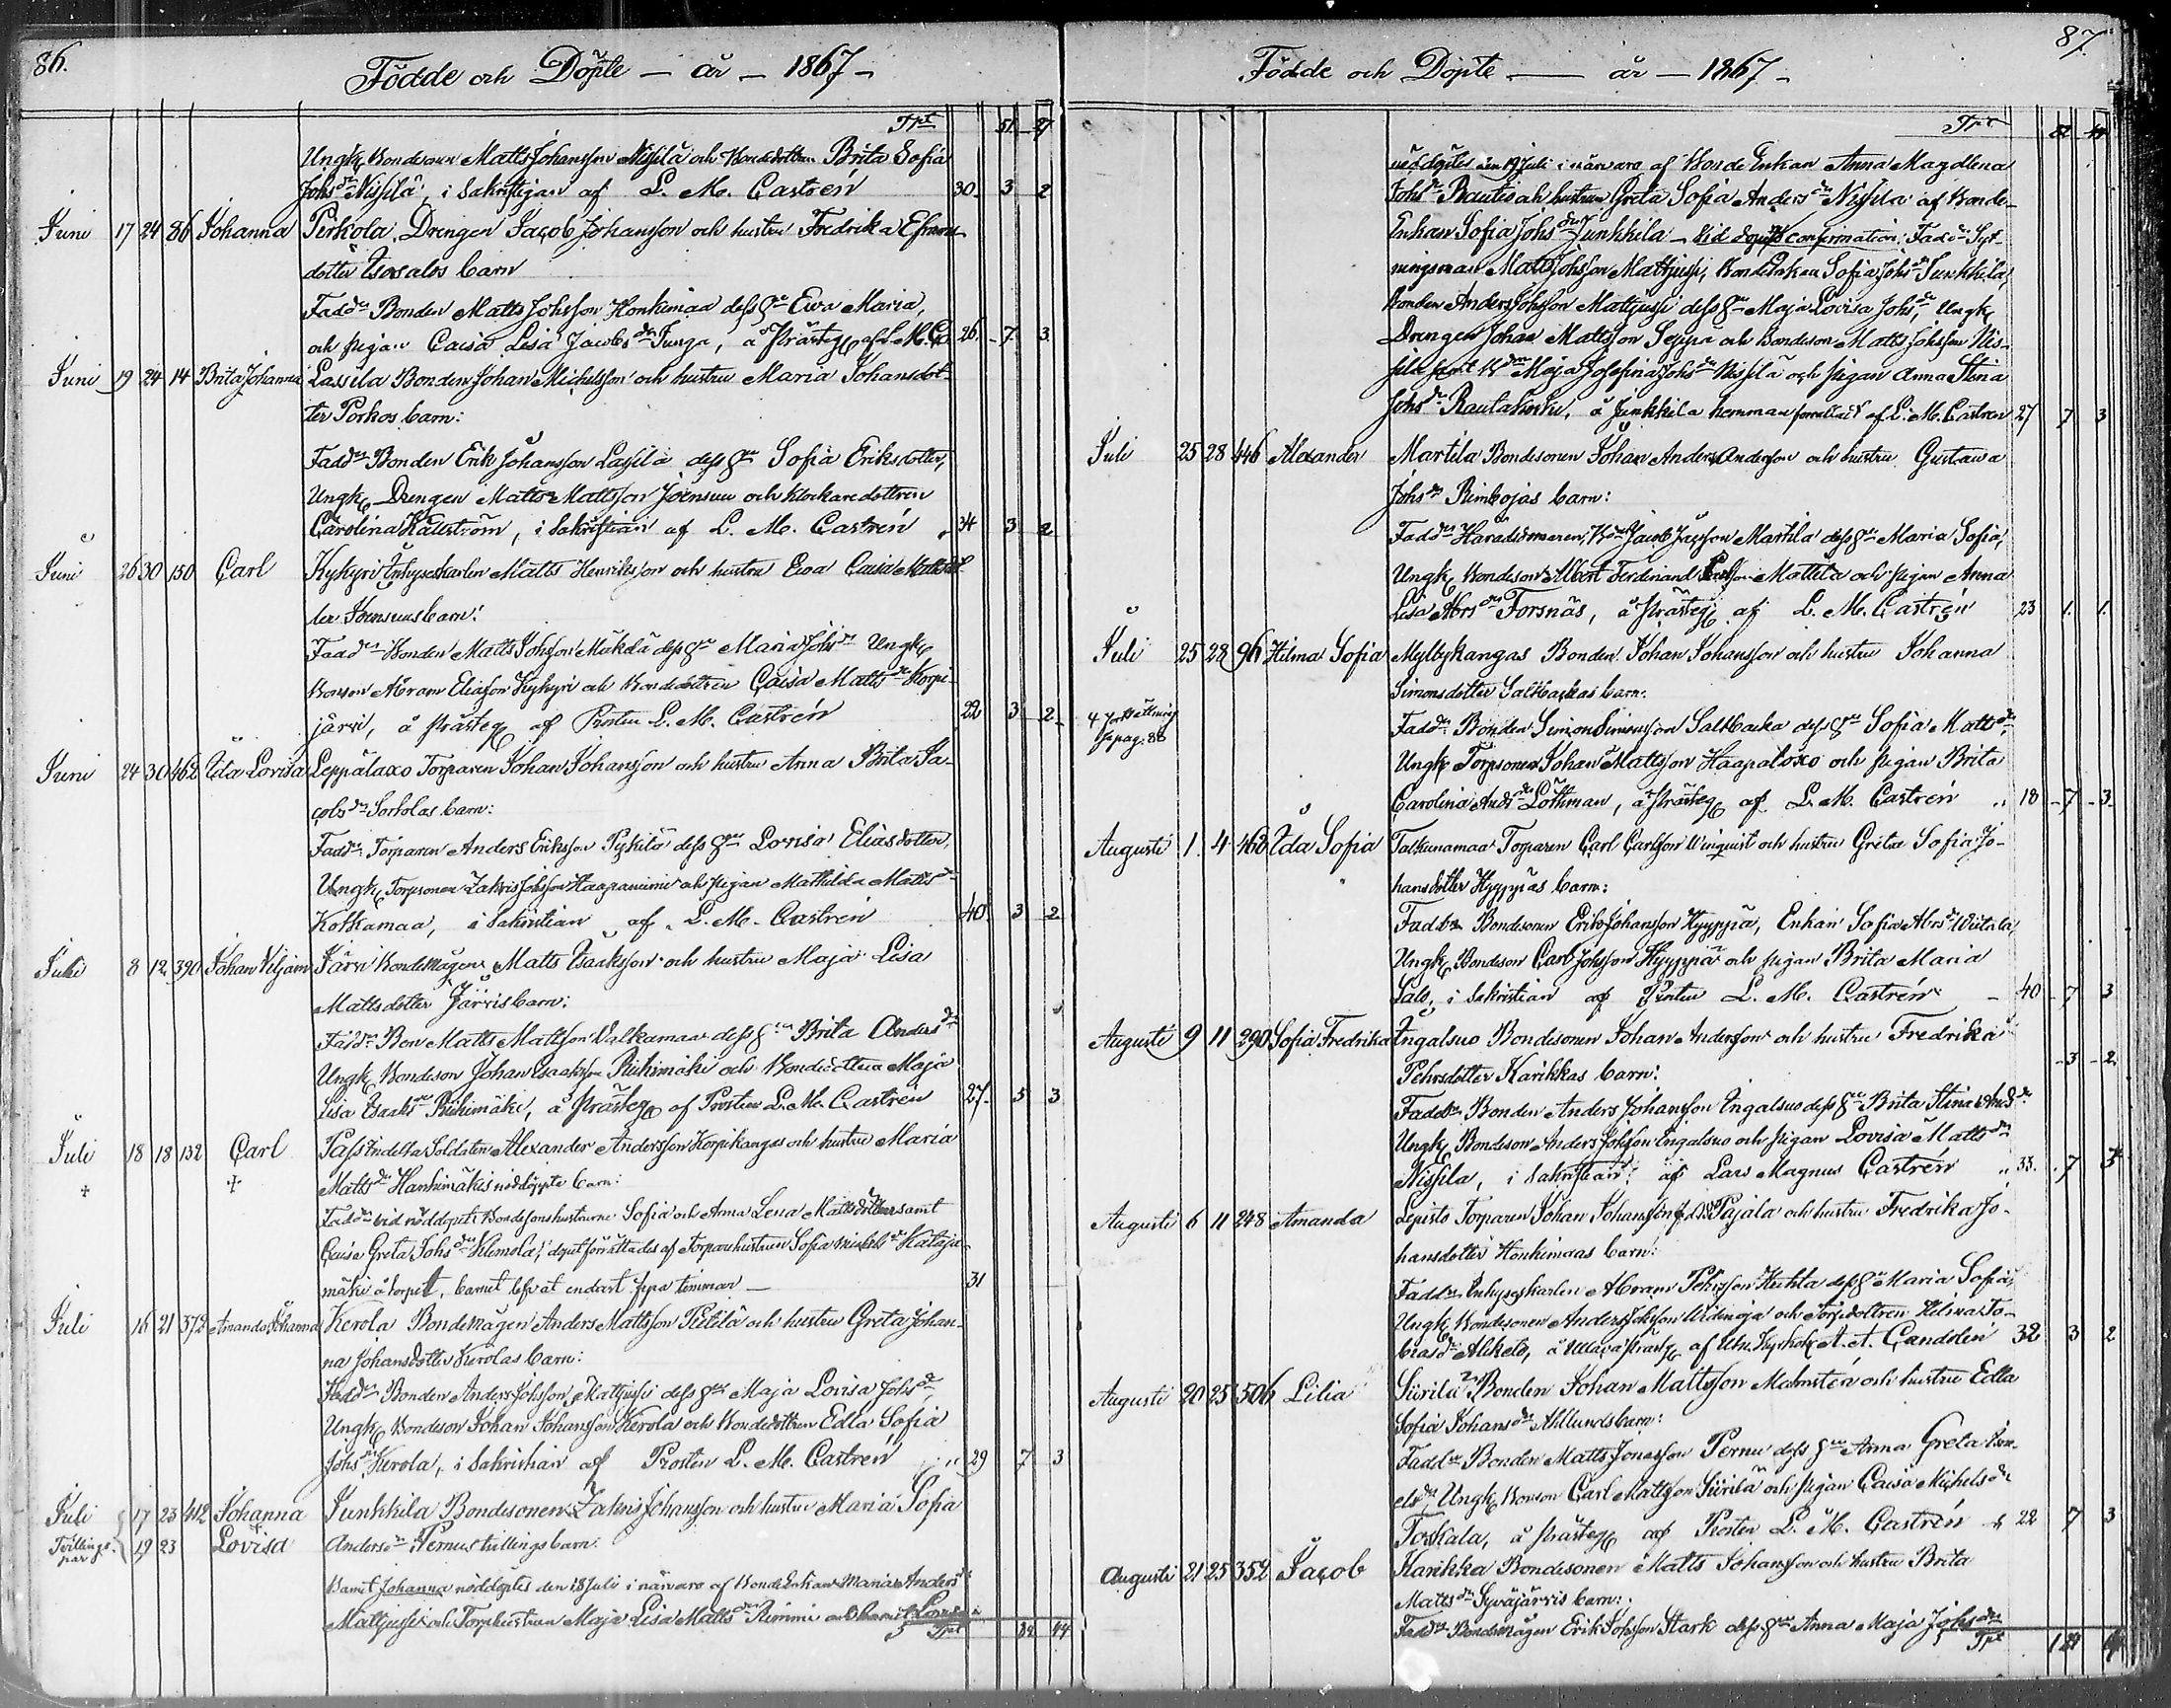 86.
Födde och Döpte — år — 1867 —
Tpt 51 27
Ungk Bondesonen Matts Johansson Nissilä och Bondedottren Brita Sofia
Johs dr Nissilä, i Sakristijan af L. M. Castrén 30 3 2
Juni 17 24 86 Johanna Perkola Drengen Jacob Johansson och hustru Fredrika
dotter barn
Fadd Bonden Matts Johsson Honkimaa dess hu Ewa Maria,
och pigan Caisa Lisa Jacobs dr Junga, å Prästeg af L. M. C. 26. 7 3.
Juni 19 24 14 Brita Johanna Lassila Bonden Johan Michelsson och hustru Maria Johansdot-
ter Porkos barn:
Fadd Bonden Erik Johansson Lassila dess hu Sofia Eriksdotter,
Ungk Drengen Matts Mattsson Joensuu och klockaredottren
Carolina Källström, i Sakristian af L. M. Castrén 34 3 2
Juni 26 30 150 Carl Kykyri Inhyseskarlen Matts Henriksson och hustru Ewa Caisa Mattsdot-
ter Joensuus barn:
Fadd Bonden Matts Johsson Mäkelä dess hu Maria Johs dr Ungk
Bonson Abram Eliasson Kykyri och Bondedottren Caisa Matts dr Korpi-
järvi, å Prästeg af Prosten L. M. Castrén 22 3 2
Juni 24 30 462 Ida Lovisa Leppälaxo Torparen Johan Johansson och hustru Anna Brita Ja-
cobs dr Sorholas barn:
Fadd Torparen Anders Eriksson Pykilä dess hu Lovisa Eliasdotter,
Ungk Torpsonen Zakris Johsson Haapaniemi och pigan Mathilda Matts dr
Kotkamaa, i Sakristian af L. M. Castrén 40. 3 2
Juli 8 12 390 Johan Viljam Järvi Bondemågen Matts Isaaksson och hustru Maja Lisa
Mattsdotter Järvis barn:
Fadd Bon Matts Mattsson Valkamaa dess hu Brita Anders dr
Ungk Bondeson Johan Isaaksson Riihimäki och Bondedottren Maja
Lisa Isaaks dr Riihimäki, å Prästeg af Prosten L. M. Castrén 27. 5 3
Juli 18 18 132 Carl Pass Indelta Soldaten Alexander Andersson Korpikangas och hustru Maria
+ + Matts dr Hanhimäkis nöddöpte barn:
Fadd vid nöddopet: Bondesonshustrurne Sofia och Anna Lena Mattsdöttrar samt
Caisa Greta Johs dr Klemola, dopet förrättades af Torparehustrun Sofia Michels dr Kataja-
mäki å torpet, barnet lefvat endast fyra timmar — 31
Juli 16 21 372 Amanda Johanna Kerola Bondemågen Anders Mattsson Pietilä och hustru Greta Johan-
na Johansdotter Kerolas barn:
Fadd Bonden Anders Johsson Mattjussi dess hu Maja Lovisa Johs dr,
Ungk Bondeson Johan Johansson Kerola och Bondedottren Edla Sofia
Johs dr Kerola, i Sakristian af Prosten L. M. Castrén 29 7 3
Juli 17 23 412 Johanna Junkkila Bondesonen Zakris Johansson och hustru Maria Sofia
Tvillings- par 19 23 Lovisa Anders dr Pernus tvillingsbarn.
Barnet Johanna nöddöptes den 18 Juli i närvaro af BondeEnkan Maria Anders dr
Mattjussi och Torphustrun Maja Lisa Matts dr Niemi och Barnet Lovisa
Tpt 82 44
87.
Födde och Döpte — år — 1867 —
Tpt 82 44
nöddöptes den 19 Juli i närvaro af BondeEnkan Anna Magdlena
Johs dr Rautio och hustrun Greta Sofia Anders dr Nissilä af Bonde-
Enkan Sofia Johs dr Junkkila — Vid dopets confirmation: Fadd Syt-
ningsman Matts Johsson Mattjussi, BondeEnkan Sofia Johs dr Junkkila,
Bonden Anders Johsson Mattjussi dess hu Maja Lovisa Johs dr, Ungk
Drengen Johan Mattsson Seppä och Bondeson Matts Johsson Nis-
silä samt Maja Josefina Johs dr Nissilä och pigan Anna Stina
Johs dr Rautakoski, å Junkkila hemman förrättadt af L. M. Castrén 27 7 3
Juli 25 28 446 Alexander Martila Bondesonen Johan Anders Andersson och hustru Gustava
Johs dr Rimbojas barn:
Fadd Häradsdomaren, Jacob Jacsson Martila dess hu Maria Sofia,
Ungk Bondeson Albert Ferdinand Mattila och pigan Anna
Lisa Abrs dr Forsnäs, å Prästeg af L. M. Castrén 23 1. 1.
Juli 25 28 96 Hilma Sofia Myllykangas Bonden Johan Johansson och hustru Johanna
Simonsdotter Saltbackas barn:
4 fortsättning på pag. 88
Fadd Bonden Simon Simonsson Saltbacka dess hu Sofia Matts dr
Ungk Torpsonen Johan Mattsson Haapalaxo och pigan Brita
Carolina Ands dr Löthman, å Prästeg af L. M. Castrén 18 7 3
Augusti 1. 4 462 Ida Sofia Talkunamaa Torparen Carl Carlsson Winquist och hustru Greta Sofia Jo-
hansdotter Hyyppäs barn:
Fadd Bondesonen Erik Johansson Hyyppä, Enkan Sofia Abrs dr Wiitala,
Ungk Bondeson Carl Johsson Hyyppä och pigan Brita Maria
Salo, i Sakristian af Prosten L. M. Castrén 40 7 3
Augusti 9 11 290 Sofia Fredrika Ingalsuo Bondesonen Johan Andersson och hustru Fredrika
Pehrsdotter Karikkas barn: 3 2
Fadd Bonden Anders Johansson Ingalsuo dess hu Brita Stina Ands dr
Ungk Bondeson Anders Johsson Ingalsuo och pigan Lovisa Matts dr
Nissilä, i Sakristian af Lars Magnus Castrén 33. 7 3
Augusti 6 11 248 Amanda Lepistö Torparen Johan Johansson Pajala och hustru Fredrika Jo-
hansdotter Honkimaas barn:
Fadd Inhyseskarlen Abram Pehrsson Huhta dess hu Maria Sofia,
Ungk Bondesonen Anders Johsson Widenoja och Torpdottren Helina To-
bias dr Aliketo, å Ullava Prästg af A. A. Candelin 32 3 2
Augusti 20 25 506 Lilia Siirilä Bonden Johan Mattsson Malmstén och hustru Edla
Sofia Johans dr Ahllunds barn:
Fadd Bonden Matts Jonasson Pernu dess hu Anna Greta
els dr, Ungk Bonson Carl Mattsson Siirilä och pigan Caisa Michels dr
Torkala, å Prästeg af Prosten L. M. Castrén 22 7 3
Augusti 21 25 352 Jacob Karikka Bondesonen Matts Johansson och hustru Brita
Matts dr Syväjärvis barn:
Fadd Bondemågen Erik Johsson Stark dess hu Anna Maja Johs dr
Tpt